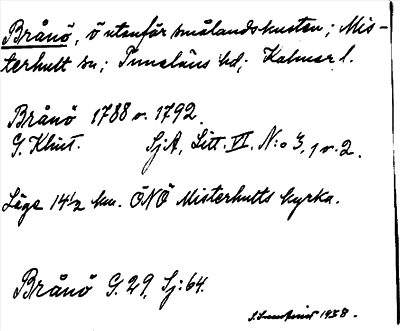 Brånö, ö utanför smålandskusten; Mis-
terhult sn.; Tunaläns hd; Kalmar l.
Brånö 1788 o. 1792.
G. Klint. SjA, Litt. VI, N:o 3, 1 o. 2.
Läge 14½ km. ÖNÖ Misterhults kyrka.
Brånö G. 29, Sj: 64.
1938.